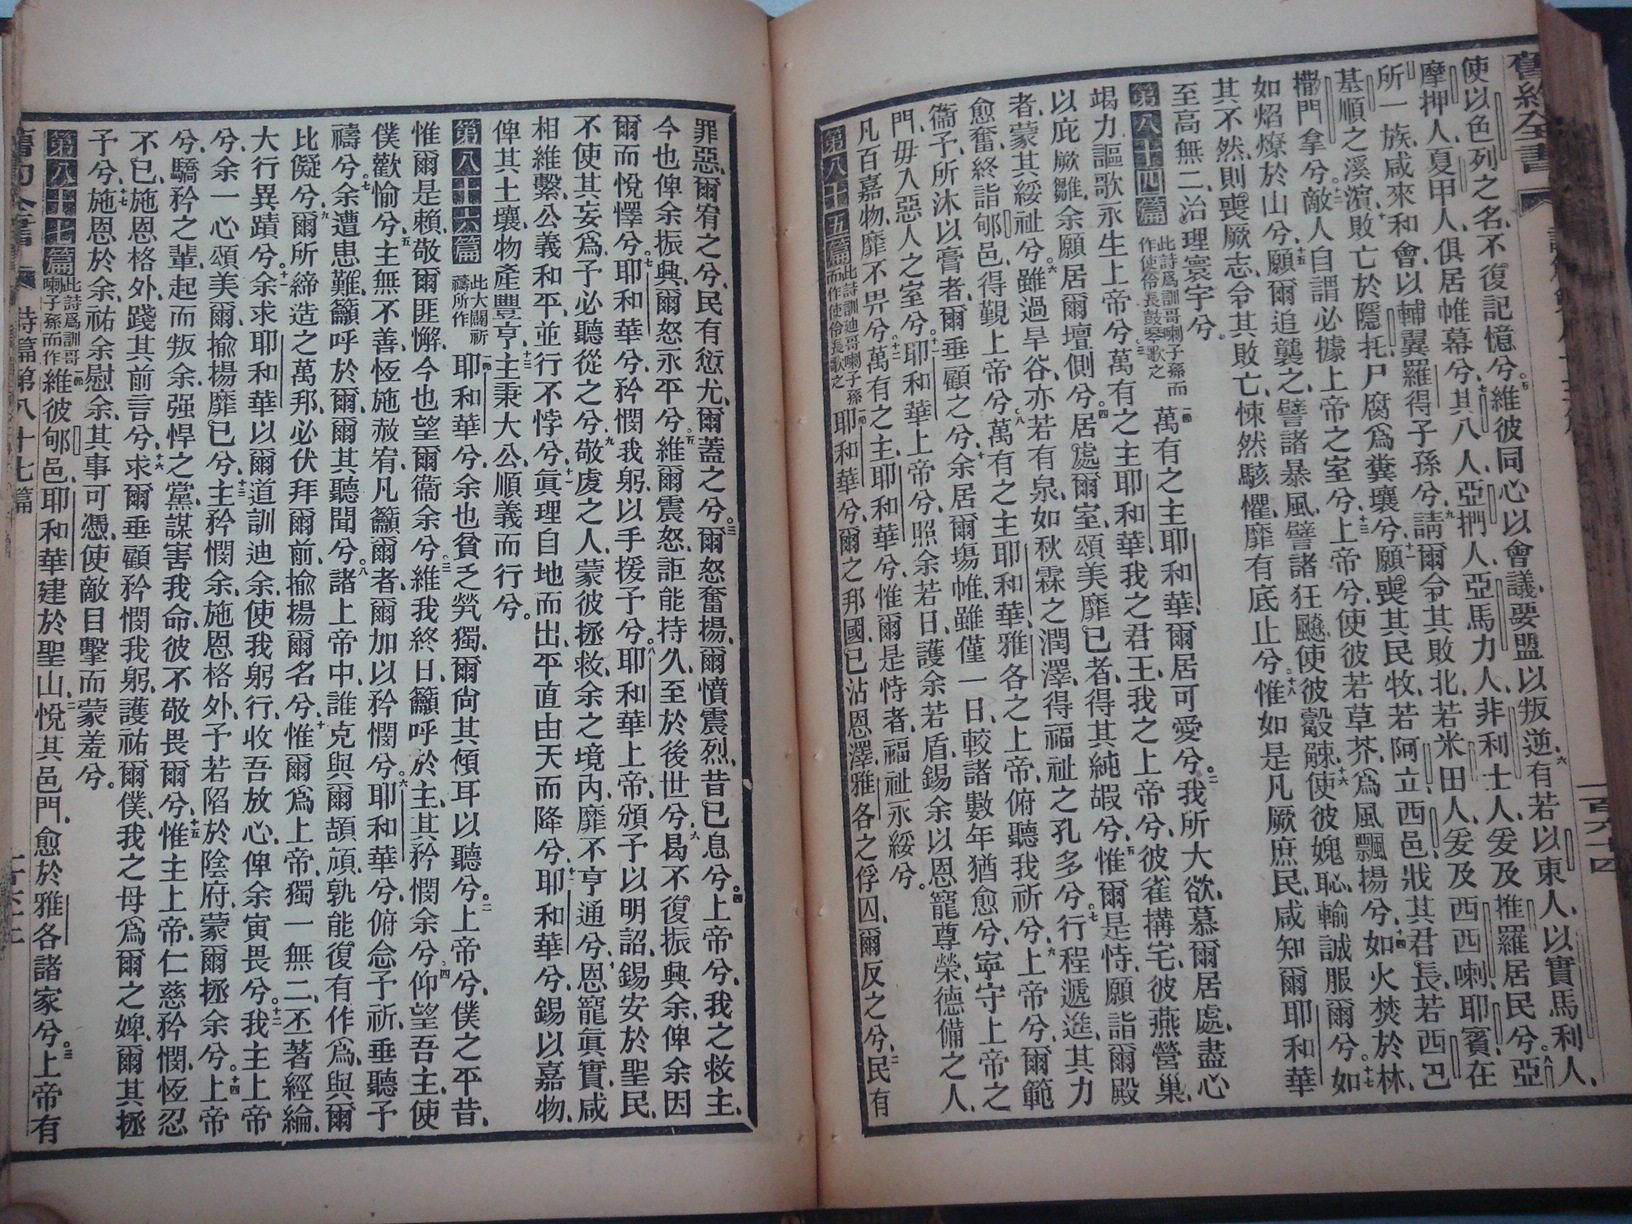 舊約全書
一百六十四
使以色列之名、不復記憶兮。五維彼同心以會議、要盟以叛逆、六有若以東人、以實馬利人、
摩押人、夏甲人、俱居帷幕兮、其八人、亞捫人、亞馬力人、非利士人、爰及推羅居民兮。亞
所一族、咸來和會、以輔翼羅得子孫兮。九請爾令其敗北、若米田人、爰及西西喇、耶賓、在
基順之溪濱、十敗亡於隱托、尸腐爲糞壤兮。十一願喪其民牧、若阿立西邑、戕其君長、若西巴
撒門拿兮。十二敵人自謂必據上帝之室兮。十三上帝兮、使彼若草芥、爲風飄揚兮。十四如火焚於林、
如焰燎於山兮。十五願爾追襲之、譬諸暴風、譬諸狂飈、使彼觳觫、十六使彼媿恥、輸誠服爾兮。十七如
其不然、則喪厥志、令其敗亡、悚然駭懼、靡有底止兮。十八惟如是、凡厥庶民、咸知爾耶和華
至高無二、治理寰宇兮。
第八十四篇 此詩爲訓哥喇子孫而作使伶長鼓琴歌之 一節萬有之主耶和華、爾居可愛兮。二我所大欲、慕爾居處、盡心
竭力、謳歌永生上帝兮。三萬有之主耶和華、我之君王、我之上帝兮、彼雀搆宅、彼燕營巢、
以庇厥雛、余願居爾壇側兮。四居處爾室、頌美靡已者、得其純嘏兮。五惟爾是恃、願詣爾殿
者、蒙其綏祉兮。六雖過旱谷、亦若有泉、如秋霖之潤澤、得福祉之孔多兮。七行程遞進、其力
愈奮、終詣郇邑、得覲上帝兮。八萬有之主耶和華、雅各之上帝、俯聽我祈兮。九上帝兮、爾範
衞予、所沐以膏者、爾垂顧之兮。十余居爾塲帷、雖僅一日、較諸數年猶愈兮、寧守上帝之
門、毋入惡人之室兮。十一耶和華上帝兮、照余若日、護余若盾、錫余以恩寵尊榮、德備之人、
凡百嘉物、靡不畀兮。十二萬有之主耶和華兮、惟爾是恃者、福祉永綏兮。
第八十五篇 此詩訓迪哥喇子孫而作使伶長歌之 一節耶和華兮、爾之邦國、已沾恩澤、雅各之俘囚、爾反之兮。二民有
罪惡、爾宥之兮、民有愆尤、爾蓋之兮。三爾怒奮揚、爾憤震烈、昔已息兮。四上帝兮、我之救主、
今也俾余振興、爾怒永平兮。五維爾震怒、詎能持久、至於後世兮。六曷不復振興余、俾余因
爾而悅懌兮。七耶和華兮、矜憫我躬、以手援予兮。八耶和華上帝、頒予以明詔、錫安於聖民、
不使其妄爲、予必聽從之兮。九敬虔之人、蒙彼拯救、余之境內、靡不亨通兮。十恩寵眞實、咸
相維繫、公義和平、並行不悖兮。十一眞理自地而出、平直由天而降兮。十二耶和華兮、錫以嘉物、
俾其土壤、物產豐亨、十三主秉大公、順義而行兮。
第八十六篇 此大闢祈禱所作 一節耶和華兮、余也貧乏煢獨、爾尙其傾耳以聽兮。二上帝兮、僕之平昔、
惟爾是賴、敬爾匪懈、今也望爾衞余兮。三維我終日籲呼於主、其矜憫余兮。四仰望吾主、使
僕歡愉兮。五主無不善、恆施赦宥、凡籲爾者、爾加以矜憫兮。六耶和華兮、俯念予祈、垂聽予
禱兮。七余遭患難、籲呼於爾、爾其聽聞兮。八諸上帝中、誰克與爾頡頏、孰能復有作爲、與爾
比儗兮。九爾所締造之萬邦、必伏拜爾前、揄揚爾名兮。十惟爾爲上帝、獨一無二、丕著經綸、
大行異蹟兮。十一余求耶和華、以爾道訓迪余、使我躬行、收吾放心、俾余寅畏兮。十二我主上帝
兮、余一心頌美爾、揄揚靡已兮。十三主矜憫余、施恩格外、予若陷於陰府、蒙爾拯余兮。十四上帝
兮、驕矜之輩、起而叛余、强悍之黨、謀害我命、彼不敬畏爾兮。十五惟主上帝、仁慈矜憫、恆忍
不已、施恩格外、踐其前言兮。十六求爾垂顧、矜憫我躬、護祐爾僕、我之母爲爾之婢、爾其拯
予兮。十七施恩於余、祐余慰余、其事可憑、使敵目擊而蒙羞兮。
第八十七篇 此詩爲訓哥喇子孫而作 一節維彼郇邑、耶和華建於聖山、二悅其邑門、愈於雅各諸家兮。三上帝有
詩篇第八十七篇